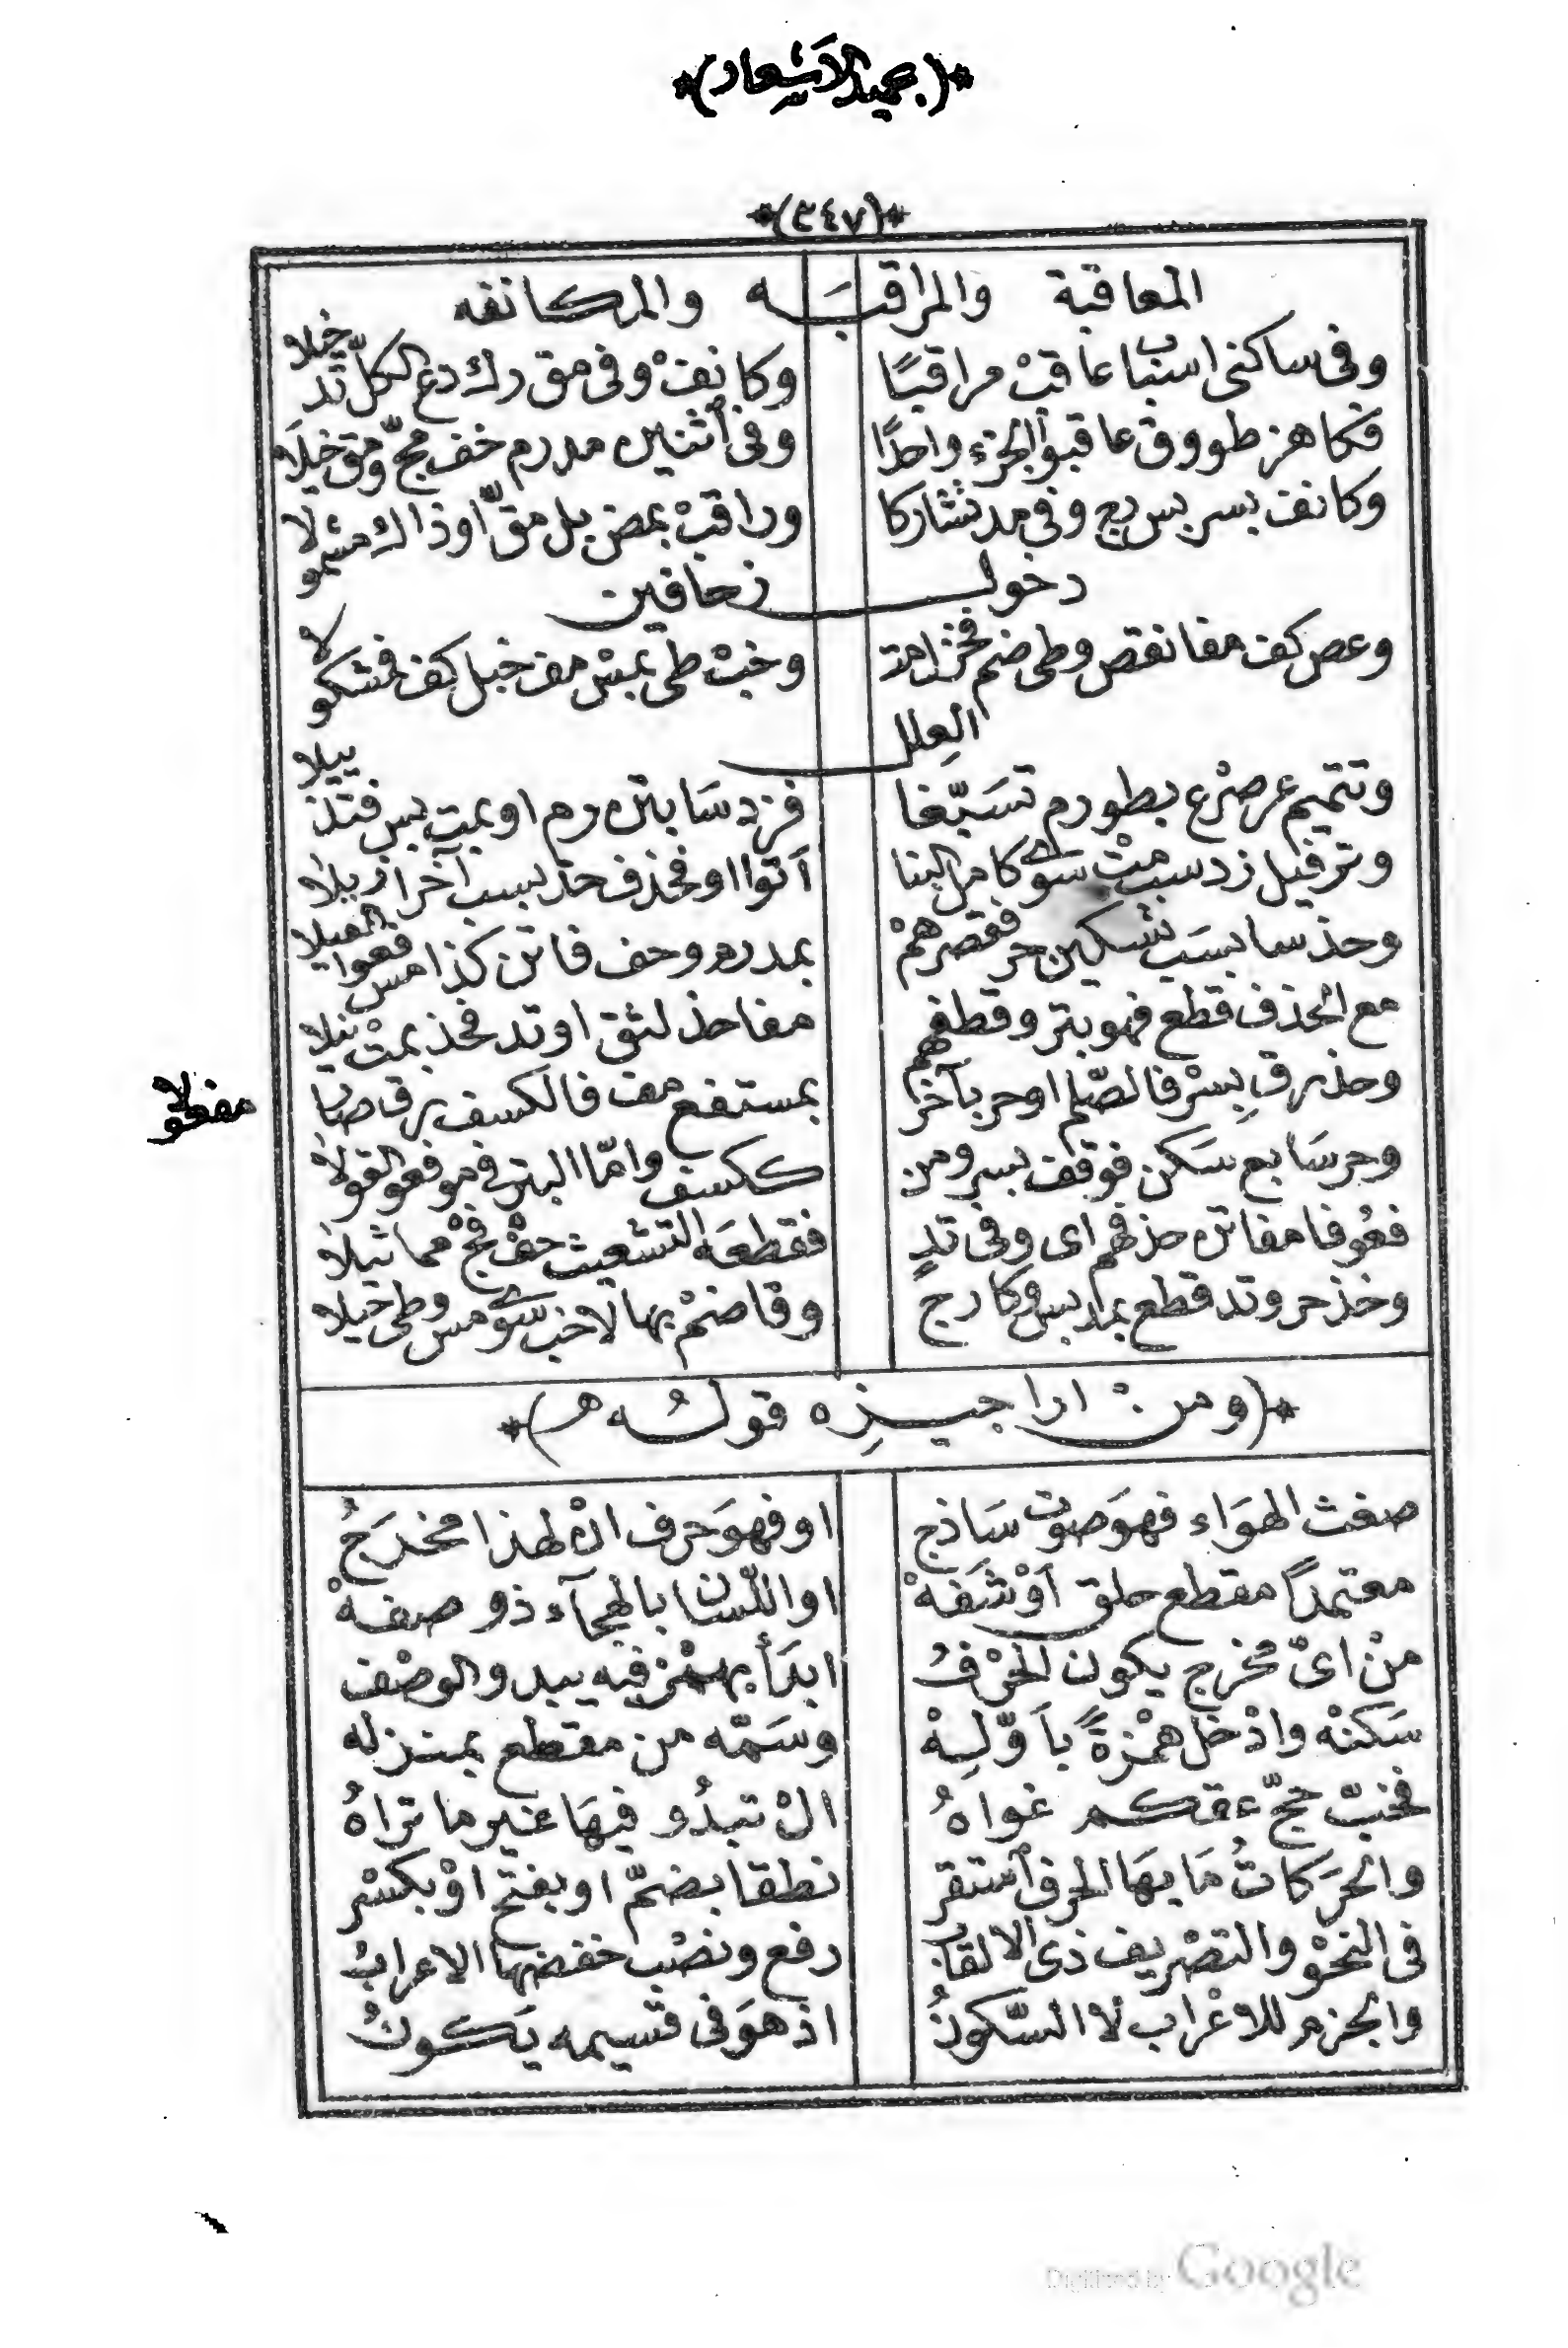 *(حميد الاشعار)*
*(٣٤٧)*
المعاقبة والمراقبَه والمكانفه
وفى ساكنى اسبا عاقبْ مراقبًا وكانِفْ وفى مق رك دع الكلّ تد خلا
فكاهز طووق عاقبوا الجزء واحدًا وفى أثنين مدرم خف مج ومق خلَه
وكانف بسر بس بع وفى مد تشاركا وراقبْ بمض بل مقّ اوذاك مشمولا
دخول زحافين
وعص كف مفا نقص وطى ضم فخزامتة وخبْ طى بمسْ مف خبل كف فمشكولا
العِلل
وتتميم عرضرع بطورم تسَبّغا فزد سَابتن رم او بمت بس فتذييلا
وترفيل زد سبب متْ سوى كامل البنا أتوا او فحذف حذ بسبب آخرا زيلا
وحذ سا بسَبَ تسكين حر فقصرهمْ بمدره وحف فاتن كذا مس فعوا
مع الحذف قطع فهو بتر وقطفهم مفاحذ لثق او تد فحذ بمتْ نيلا
وحذ رق بِسرْ فالصّلم او حر بآخرا بمستفع مف فالكسف رق صار مفعولا
وحر سَابع سَكن فوقف بسر ومن ككسف وامّا البتر فى موفعو القولا
فعُو فا مفاتن حذفهم اى وفى تدٍ فقطعَه التشعيث خفْ مجْ مماثيلا
وخذ حر وتد قطع بمد بس وكارج وقاضمْ بها لاخب سوى مس وطى خيلا
*(ومنْ اراجيزه قولُه)*
صفث الهوَاء فهوَ صوت سَاذج او فهوَ حرف انْ لهذا مخرَجُ
معتمدًا مقطع حلق أوْ شَفَهْ او اللّسان بالهجآء ذو صفهْ
منْ اىّ مخرج يكون الحرْفُ ابدَأ بهمْز فيه يبدو الوصْف
سَكنْه وادْخل همْزةً بأوّلِهْ وسَمّه من مقطع بمنزله
فخبّ حجّ عقكم غواهُ الْ تبدُو فيهَا غير ما تراهُ
والحرَكاتُ مَا بهَا الحرف استقر نطقا بضمّ او بفتح اوْ بكسْر
فى النحْو والتصْريف ذى الالقاب رفع ونصْب خفضها الاعرابُ
والجزم للاعْراب لا السّكونُ اذ هوَ فى قسيمه يَكونُ
Digitized by Google